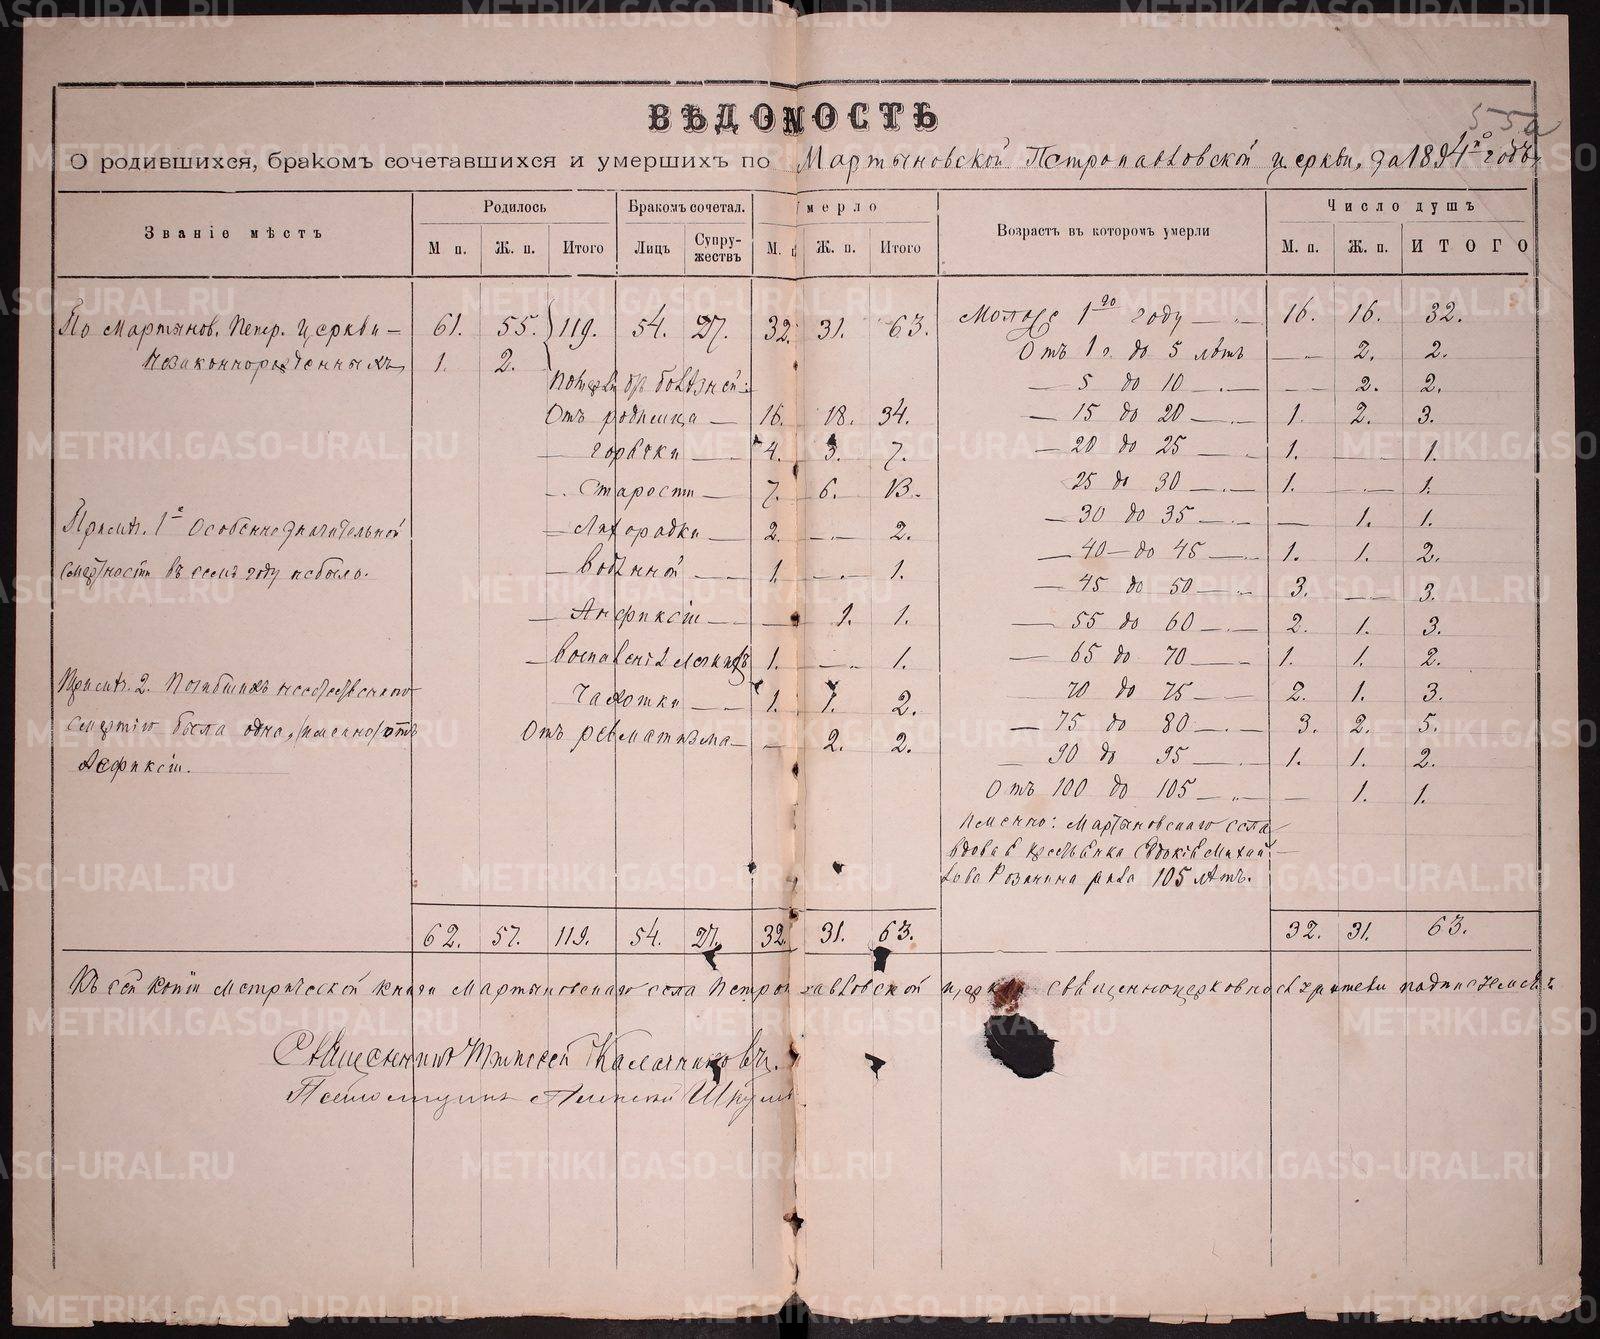 ВѢДОМОСТЬ
О родившихся, бракомъ сочетавшихся и умершихъ по Мартыновской Петропавловской церкви, за 1894й годъ
Званіе мѣстъ
Родилось
М п. Ж. п. Итого
Бракомъ сочетал.
Лицъ Супружествъ
мерло
М. Ж. п. Итого
Возрастъ въ котором умерли
Число душъ
М. п. Ж. п. ИТОГО
По Мартынов. Петр. церкви — 61. 55. 119. 54. 27. 32. 31. 63.
Незаконнорожденныхъ 1. 2.
По болѣзней:
Отъ родимца — 16. 18. 34.
— горячки — 4. 3. 7.
— Старости — 7. 6. 13.
— Лихорадки — 2. — 2.
— водяной — 1. — 1.
— Асфиксіи — — 1. 1.
— воспаленія легкихъ 1. — 1.
Чахотки — 1. 1. 2.
Отъ ревматизма — — 2. 2.
Примѣч. 1е Особенно значительной
смертности въ семъ году не было.
Примѣч. 2. Погибшихъ неестественно
смертію была одна, /именно/ отъ
Асфиксіи.
Моложе 1го году — 16. 16. 32.
Отъ 1 г. до 5 лѣтъ — 2. 2.
— 5 до 10 — — 2. 2.
— 15 до 20 — 1. 2. 3.
— 20 до 25 — 1. — 1.
25 до 30 — 1. — 1.
— 30 до 35 — — 1. 1.
— 40 — до 45 — 1. 1. 2.
— 45 до 50 — 3. — 3.
— 55 до 60 — 2. 1. 3.
— 65 до 70 — 1. 1. 2.
— 70 до 75 — 2. 1. 3.
— 75 до 80 — 3. 2. 5.
— 90 до 95 — 1. 1. 2.
Отъ 100 до 105 — — 1. 1.
Именно: Мартыновскаго села
вдова крестьянка Евдокія Михай
лова 105 лѣтъ.
62. 57. 119. 54. 27. 32. 31. 63. 32. 31. 63.
Къ сей копіи метрической книги Мартыновскаго села Петропавловской священноцерковнослужители подписуемся:
Священникъ Алексей Калачниковъ.
Псаломщикъ Алексей
METRIKI.GASO-URAL.RU